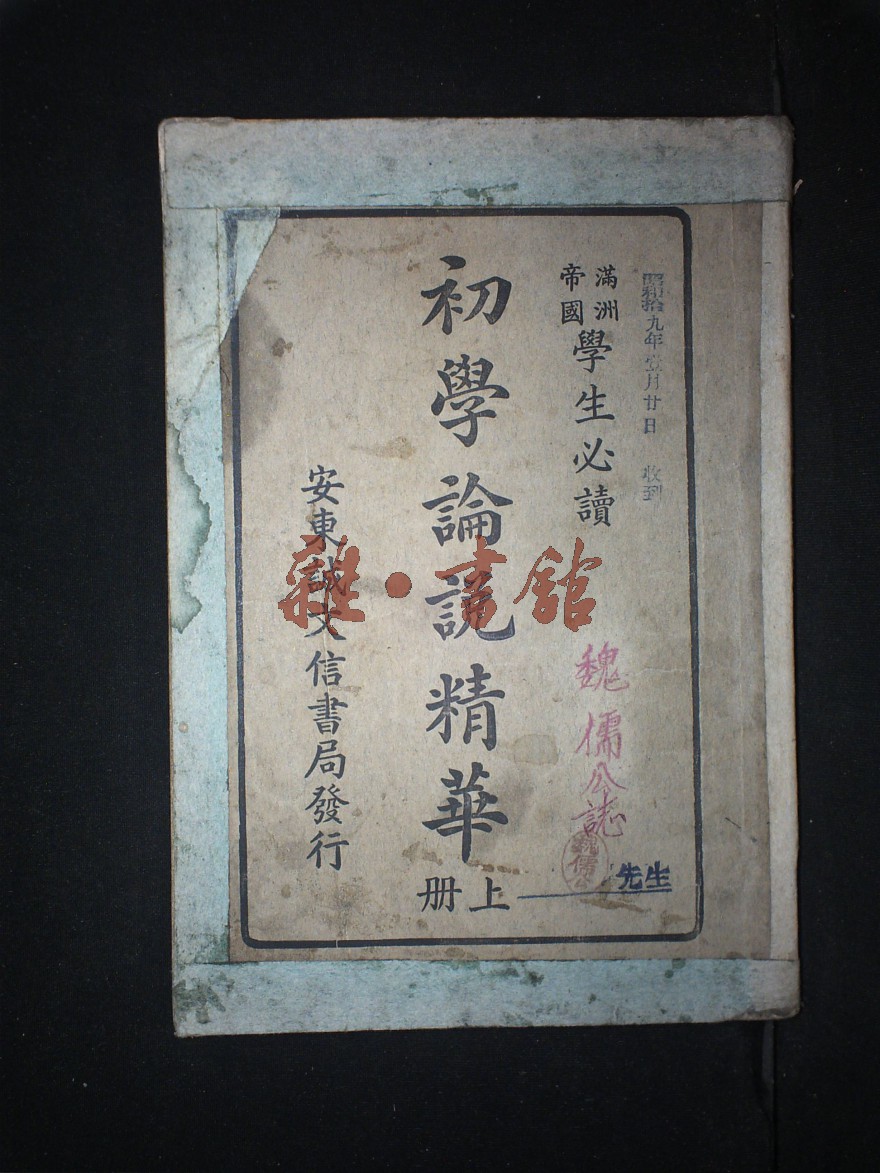 昭和拾九年壹月廿日 收到
滿洲
帝國
學生必讀
魏儒公誌
魏儒公
先生
初學論説精華
上册
安東誠文信書局發行
雜·書館